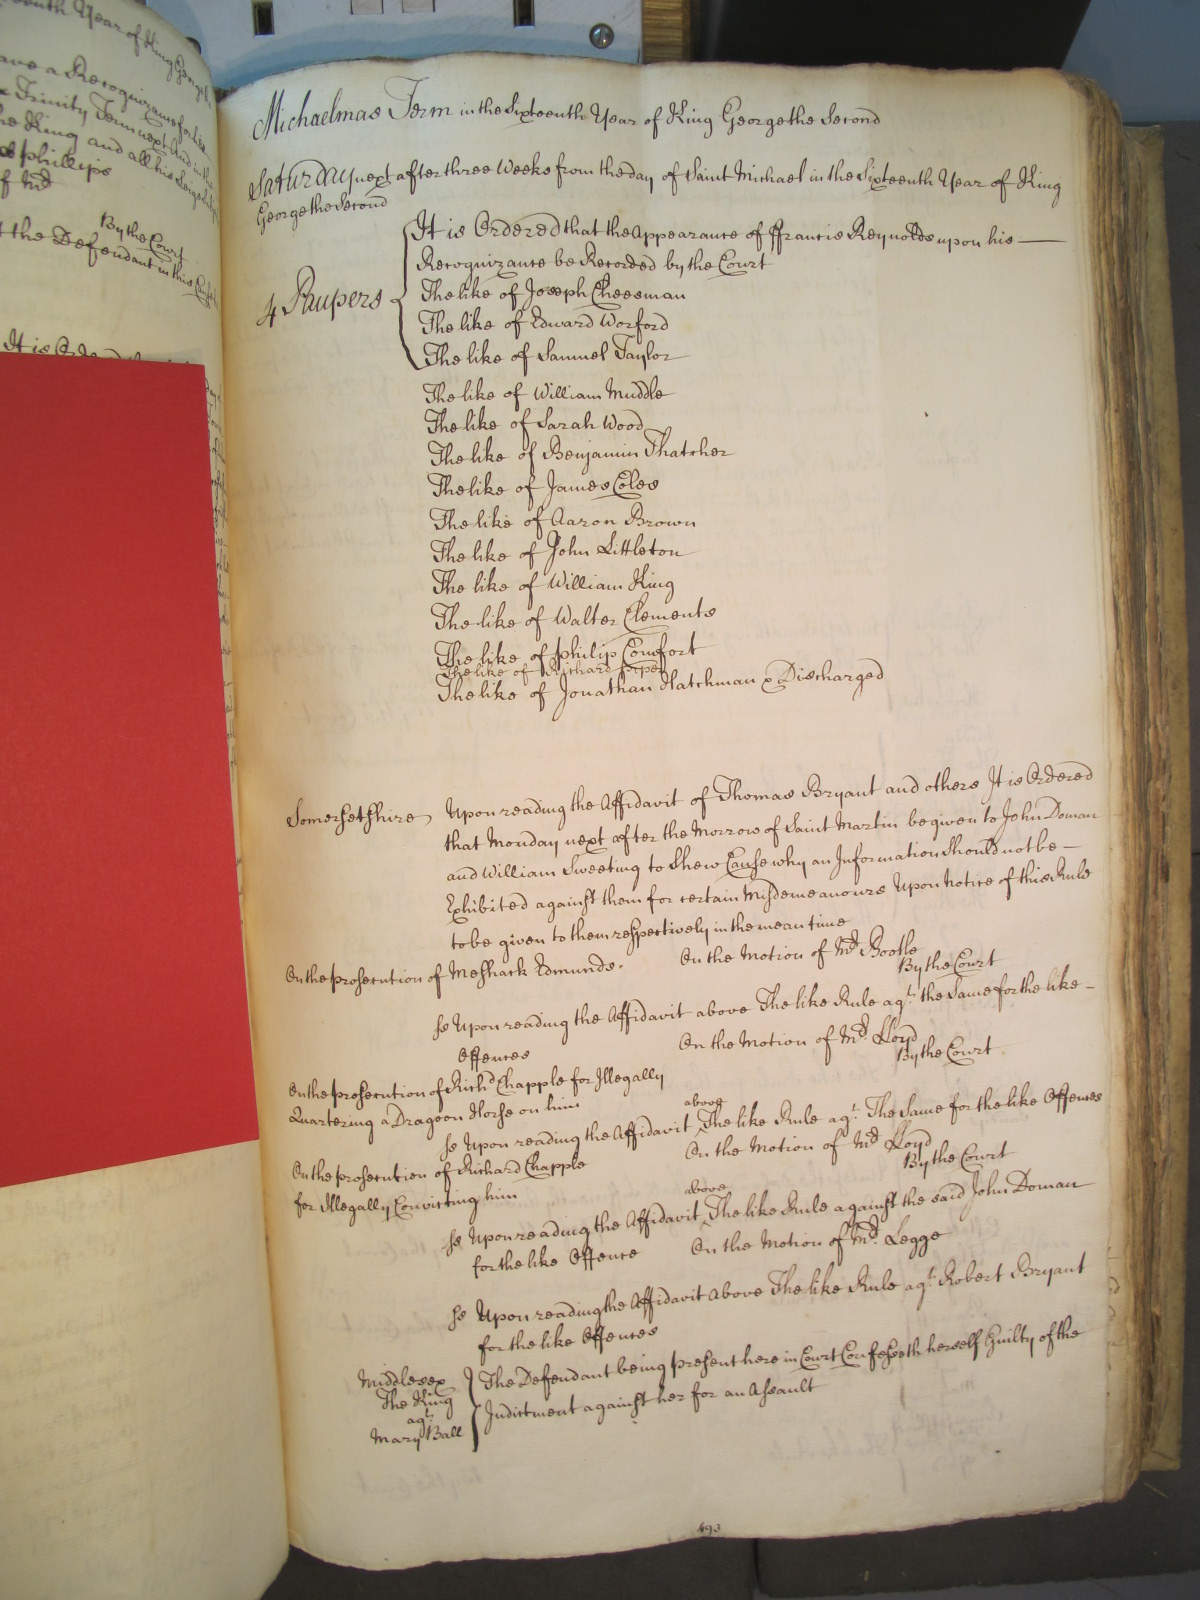 eenth Year of King George
ave a Recognizance for his
x Trinity Term next And in the
he King and all his Liege
phillips
f Mr
By the Court
t the Defendant in this Court
It is
Michaelmas Term in the Sixteenth Year of King George the Second
Saturday next after three Weeks from the day of Saint Michael in the Sixteenth Year of King
George the Second
4 Paupers
It is Ordered that the Appearance of ffrancis Reynolds upon his —
Recognizance be Recorded by the Court
The like of Joseph Cheesman
The like of Edward Worford
The like of Samuel Taylor
The like of William Muddle
The like of Sarah Wood
The like of Benjamin Thatcher
The like of James Coles
The like of Aaron Brown
The like of John Littleton
The like of William King
The like of Walter Clements
The like of philip Comfort
The like of Richard piper
The like of Jonathan Hatchman & Discharged
Somersetshire
Upon reading the Affidavit of Thomas Bryant and others It is Ordered
that Monday next after the Morrow of Saint Martin be given to John Doman
and William Sweeting to Shew Cause why an Information Should not be —
Exhibited against them for certain Misdemeanours Upon Notice of this Rule
to be given to them respectively in the mean time
On the prosecution of Meshack Edmunds.
On the Motion of Mr. Bootle
By the Court
ss Upon reading the Affidavit above The like Rule agt. the Same for the like –
Offences
On the Motion of Mr. Lloyd
By the Court
On the prosecution of Richd Chapple for Illegally
Quartering a Dragoon Horse on him
ss Upon reading the Affidavit above The like Rule agt. The Same for the like Offences
On the Motion of Mr. Lloyd
By the Court
On the prosecution of Richard Chapple
for Illegally Convicting him
ss Upon reading the Affidavit above The like Rule against the said John Doman
for the like Offence
On the Motion of Mr. Legge
ss Upon reading the Affidavit above The like Rule agt. Robert Bryant
for the like Offences
Middlesex
The King
agt.
Mary Ball
The Defendant being present here in Court Confesseth herself Guilty of the
Indictment against her for an Assault
493